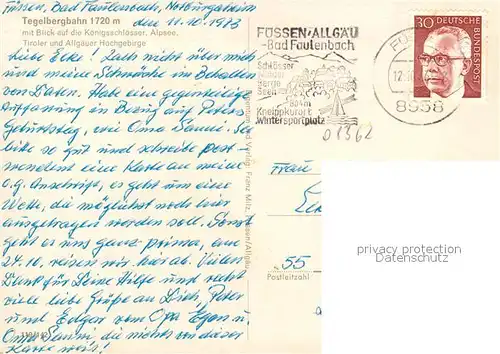 Füssen, Bad Faulenbach, Notburgaheim
Tegelbergbahn 1720 m den 11.10.1973
mit Blick auf die Königsschlösser, Alpsee,
Tiroler und Allgäuer Hochgebirge
Liebe Ecke! Lach nicht über mich
und meine Schwäche im Behalten
von Daten. Habe eine gegenteilige
Auffassung in Bezug auf Peters
Geburtstag, wie Oma Sanni. Sei
bitte so gut und schreibe post-
wendend eine Karte an meine
o.g. Anschrift, es geht um eine
Wette, die möglichst noch hier
ausgetragen werden soll. Sonst
geht es uns ganz prima, am
24.10. reisen wir hier ab. Vielen
Dank für Deine Hilfe und recht
viele liebe Grüße an Dich, Peter
und Edgar vom Opa Egon u.
Oma Sanni, die nichts von dieser
Karte weiß!
Verlag Franz Milz, Füssen/Allgäu
FÜSSEN/ALLGÄU
-Bad Faulenbach
Schlösser
Berge
Seen
804m
Kneippkurort
Wintersportplatz
8958
30 DEUTSCHE
BUNDESPOST
01362
Frau
55
Postleitzahl
privacy protection